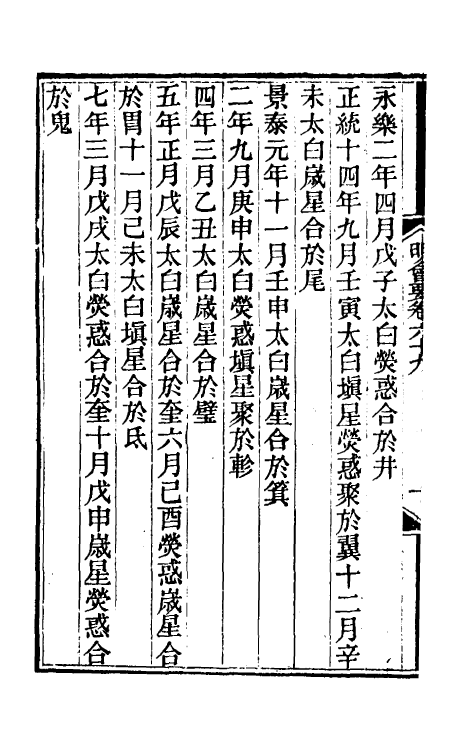 永樂二年四月戊子太白熒惑合於井
正統十四年九月壬寅太白塡星熒惑聚於翼十二月辛
未太白歲星合於尾
景泰元年十一月壬申太白歲星合於箕
二年九月庚申太白熒惑塡星聚於軫
四年三月乙丑太白歲星合於壁
五年正月戊辰太白歲星合於奎六月己酉熒惑歲星合
於胃十一月己未太白塡星合於氐
七年三月戊戌太白熒惑合於奎十月戊申歲星熒惑合
於鬼
明會要卷六十九
一